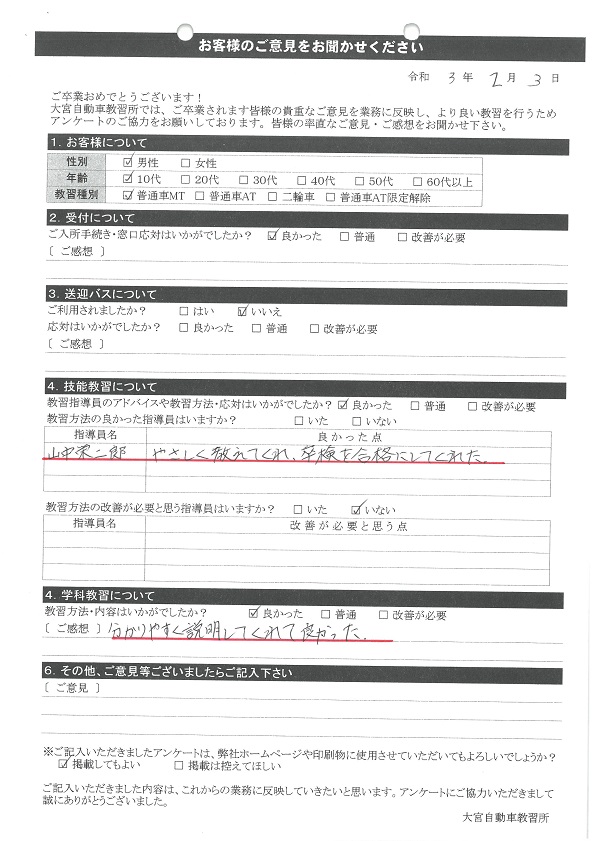 お客様のご意見をお聞かせください
令和 3 年 2 月 3 日
ご卒業おめでとうございます！
大宮自動車教習所では、ご卒業されます皆様の貴重なご意見を業務に反映し、より良い教習を行うため
アンケートのご協力をお願いしております。皆様の率直なご意見・ご感想をお聞かせ下さい。
1. お客様について
性別 ☑ 男性 □ 女性
年齢 ☑ 10代 □ 20代 □ 30代 □ 40代 □ 50代 □ 60代以上
教習種別 ☑ 普通車MT □ 普通車AT □ 二輪車 □ 普通車AT限定解除
2. 受付について
ご入所手続き・窓口応対はいかがでしたか？ ☑ 良かった □ 普通 □ 改善が必要
〔 ご感想 〕
3. 送迎バスについて
ご利用されましたか？ □ はい ☑ いいえ
応対はいかがでしたか？ □ 良かった □ 普通 □ 改善が必要
〔 ご感想 〕
4. 技能教習について
教習指導員のアドバイスや教習方法・応対はいかがでしたか？ ☑ 良かった □ 普通 □ 改善が必要
教習方法の良かった指導員はいますか？ □ いた □ いない
指導員名 良かった点
山中栄二郎 やさしく教えてくれ、卒検を合格にしてくれた。
教習方法の改善が必要と思う指導員はいますか？ □ いた ☑ いない
指導員名 改善が必要と思う点
4. 学科教習について
教習方法・内容はいかがでしたか？ ☑ 良かった □ 普通 □ 改善が必要
〔 ご感想 〕 分かりやすく説明してくれて良かった。
6. その他、ご意見等ございましたらご記入下さい
〔 ご意見 〕
※ご記入いただきましたアンケートは、弊社ホームページや印刷物に使用させていただいてもよろしいでしょうか？
☑ 掲載してもよい □ 掲載は控えてほしい
ご記入いただきました内容は、これからの業務に反映していきたいと思います。アンケートにご協力いただきまして
誠にありがとうございました。
大宮自動車教習所